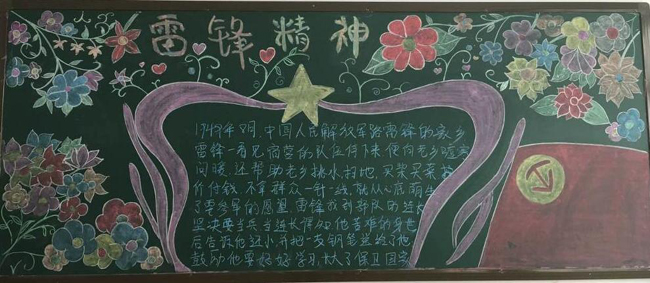 雷锋精神
1949年8月,中国人民解放军路雷锋的家乡
雷锋一看见宿营的队伍停下来便向老乡嘘寒
问暖,还帮助老乡挑水扫地,买柴买菜按
价付钱,不拿群众一针一线,就从心底萌生
了要参军的愿望,雷锋找到部队的连长
坚决要当兵当连长得知他苦难的身世
后告诉他还小并把一支钢笔送给了他
鼓励他要好好学习,长大了保卫国家